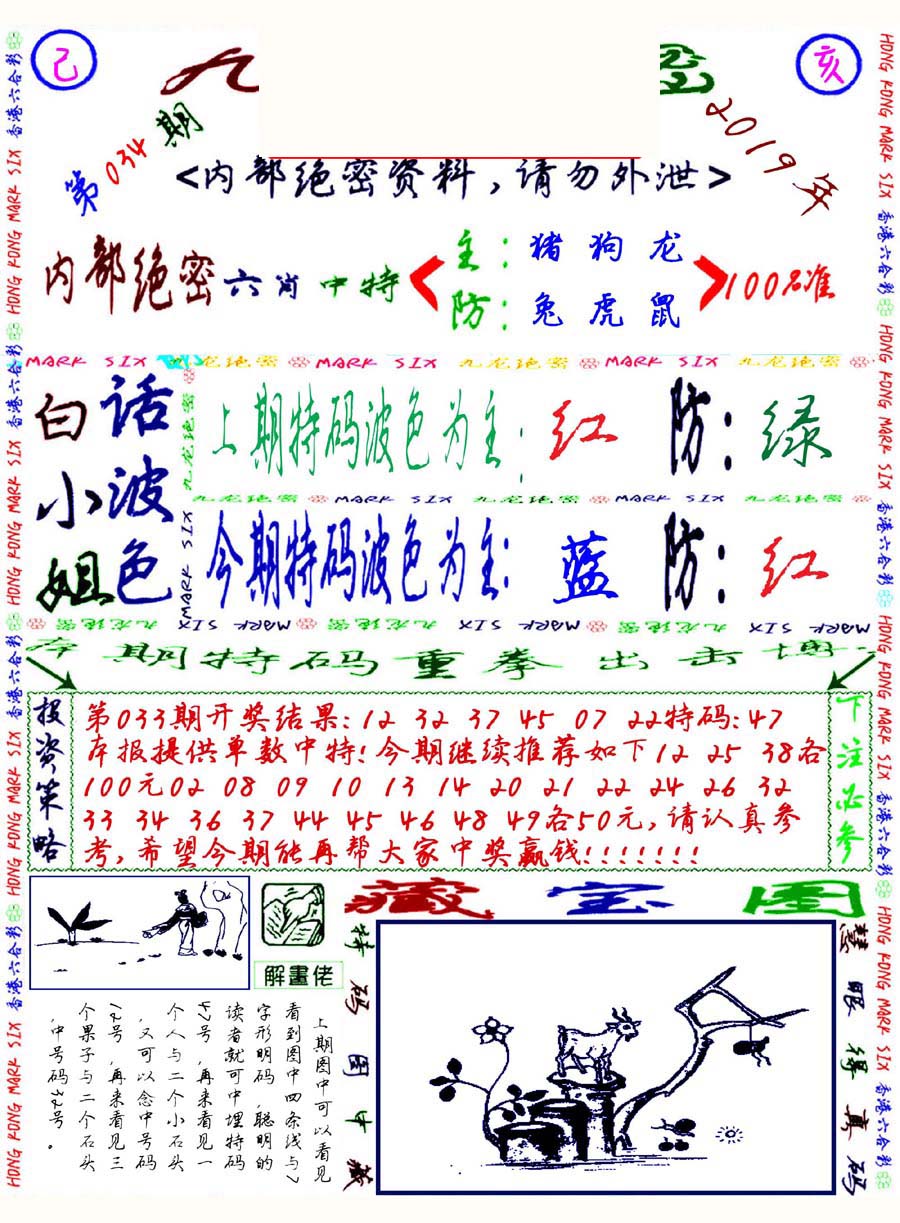 己
九
密
亥
第034期
2019年
<内部绝密资料,请勿外泄>
内部绝密六肖中特
主:猪狗龙
防:兔虎鼠
100%准
MARK SIX 九龙绝密 MARK SIX 九龙绝密 MARK SIX 九龙绝密
白话
小波
姐色
上期特码波色为主:红 防:绿
九龙绝密 MARK SIX 九龙绝密 MARK SIX 九龙绝密
今期特码波色为主:蓝 防:红
九龙绝密
MARK SIX
MARK SIX 九龙绝密 MARK SIX 九龙绝密 MARK SIX 九龙绝密
本期特码重拳出击博
投资策略
第033期开奖结果:12 32 37 45 07 22特码:47
本报提供单数中特!今期继续推荐如下12 25 38各
100元02 08 09 10 13 14 20 21 22 24 26 32
33 34 36 37 44 45 46 48 49各50元,请认真参
考,希望今期能再帮大家中奖赢钱!!!!!!!
下注必参
解畫佬
藏宝图
上期图中可以看见
看到图中四条线与7
字形明码,聪明的
读者就可中埋特码
47号,再来看见一
个人与二个小石头
,又可以念中号码
12号,再来看见三
个果子与二个石头
,中号码32号。
特码图中藏
慧眼得真码
HONG KONG MARK SIX 香港六合彩 HONG KONG MARK SIX 香港六合彩 HONG KONG MARK SIX 香港六合彩 HONG KONG MARK SIX 香港六合彩
HONG KONG MARK SIX 香港六合彩 HONG KONG MARK SIX 香港六合彩 HONG KONG MARK SIX 香港六合彩 HONG KONG MARK SIX 香港六合彩